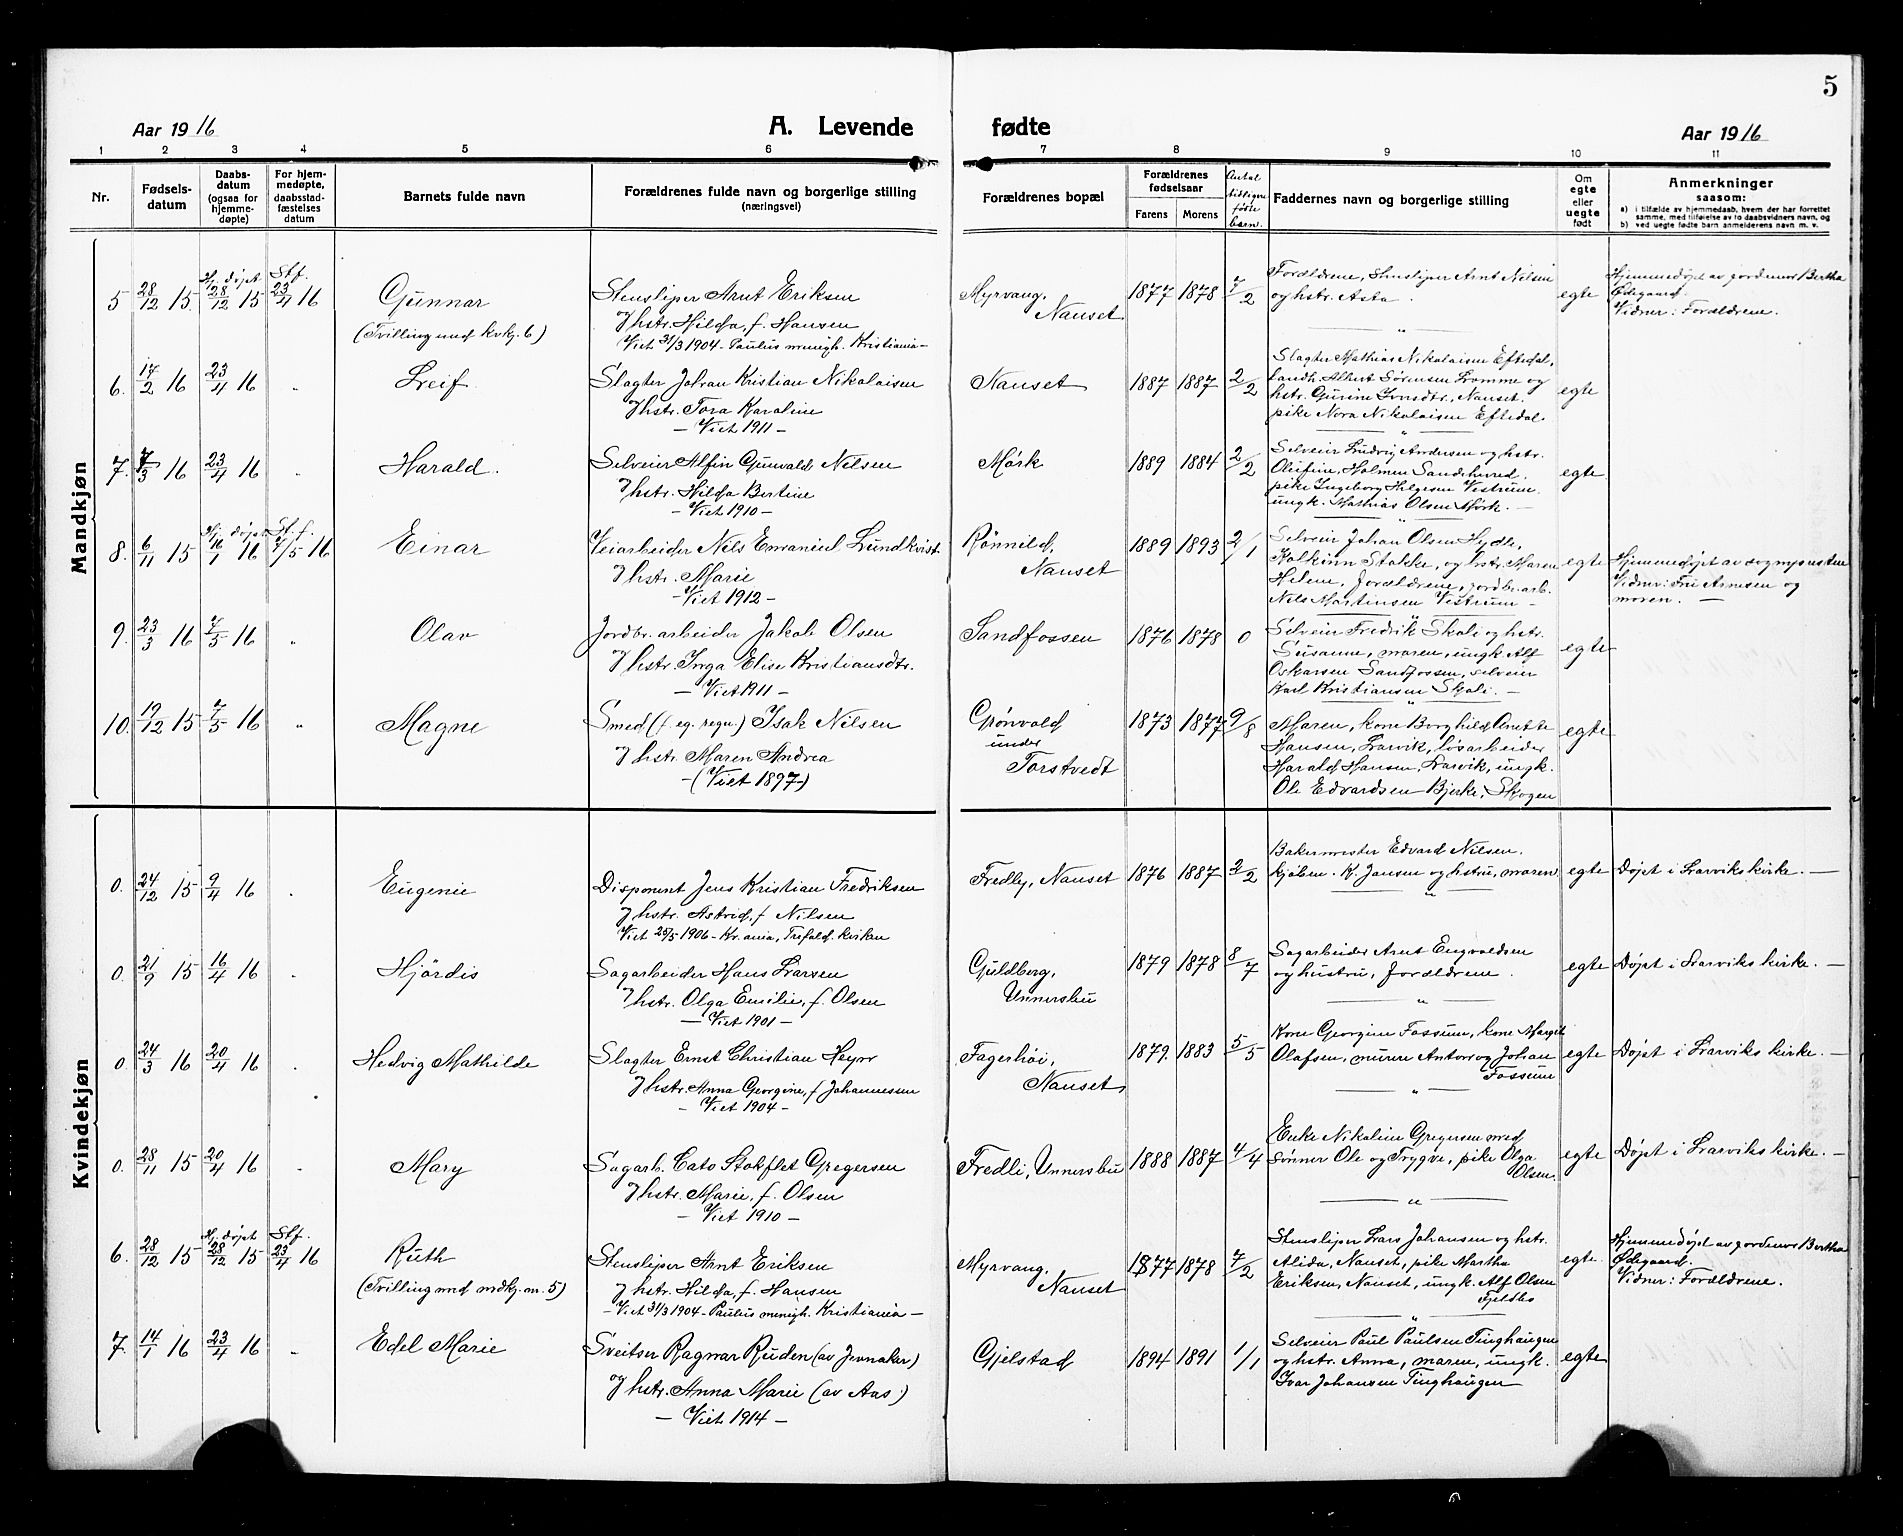 5
Aar 1916
A. Levende fødte
Aar 1916
1 2 3 4 5 6 7 8 9 10 11
Nr.
Fødsels-
datum
Daabs-
datum
(ogsaa for
hjemme-
døpte)
For hjem-
medøpte,
daabsstad-
fæstelses
datum
Barnets fulde navn
Forældrenes fulde navn og borgerlige stilling
(næringsvei)
Forældrenes bopæl
Forældrenes
fødselsaar
Farens Morens
Antal
tidligere
fødte
barn.
Faddernes navn og borgerlige stilling
Om
egte
eller
uegte
født
Anmerkninger
saasom:
a) i tilfælde av hjemmedaab, hvem der har forrettet
samme, med tilføielse av to daabsvidners navn, og
b) ved uegte fødte barn anmelderens navn m. v.
Mandkjøn
5 28/12 15. Hj. døpt 28/12 15 Stf. 23/4 16
Gunnar
(Tvilling med kvkj. 6)
Stensliper Arnt Eriksen
og hstr. Hilda, f. Hansen
Viet 31/3 1904 - Paulus menigh. Kristiania -
Myrvang,
Nanset
1877 1878 7/2
Forældrene, Stensliper Arnt Nilsen
og hstr. Asta.
egte
Hjemmedøpt av jordmor Bertha
Ødegaard.
Vidner: Forældrene.
6. 17/2 16 23/4 16 "
Leif.
Slagter Johan Kristian Nikolaisen
og hstr. Tora Karoline
- Viet 1911 -
Nanset
1887 1887 2/2
Slagter Mathias Nikolaisen Eftedal,
landh. Albert Sørensen Lomme og
hstr. Gurine, Nanset.
pike Nora Nikolaisen Eftedal.
egte
7. 7/3 16 23/4 16 "
Harald.
Selveier Alfin Gunvald Nilsen
og hstr. Hilda Bertine
- Viet 1910 -
Mørk
1889 1884 2/2
Selveier Ludvig Andersen og hstr.
Olufine, Holmen Sandeherred,
pike Ingeborg Helgesen Vestrum.
ungk. Mathias Olsen Mørk. -
egte
8. 6/11 15 Hj. døpt 16/1 16 St. f. 7/5 16
Einar
Veiarbeider Nils Emanuel Lundkvist
og hstr. Marie
- Viet 1912 -
Rønnild,
Nanset
1889 1893 2/1
Selveier Johan Olsen Hydle,
Stokke, og hstr. Maren
Helene, forældrene, jordbr. arb.
Nels Martinsen Vestrum -
egte
Hjemmedøpt av sognepresten
Vidner: Fru Arnesen og
moren. -
9. 23/3 16 7/5 16 "
Olav
Jordbr. arbeider Jakob Olsen
og hstr. Inga Elise Kristiansdtr.
- Viet 1911 -
Sandfossen
1876 1878 0
Selveier Fredrik Skoli og hstr.
Susanne, moren, ungk. Alf
Oskarsen Sandfossen, selveier
Karl Kristiansen Skoli. -
egte
10. 19/12 15 7/5 16 "
Magne
Smed (f. eg. regn.) Isak Nilsen
og hstr. Maren Andrea
- (Viet 1897) -
Grønvold
under
Torstvedt
1873 1877 9/8
Moren, kone Borghild Anette
Hansen, Larvik, løsarbeider
Harald Hansen, Larvik, ungk.
Ole Edvardsen Bjerke, Skogen
egte
Kvindekjøn
0. 24/12 15 9/4 16 "
Eugenie
Disponent Jens Kristian Fredriksen
og hstr. Astrid, f. Nilsen
Viet 25/5 1906 - Kr.ania, Trefold. kirken
Fredly, Nanset
1876 1887 2/2
Bakermester Edvard Nilsen.
kjøbm. K. Jansen og hstru, moren
egte
Døpt i Larviks kirke. -
0. 21/9 15 16/4 16 "
Hjördis
Sagarbeider Hans Larsen
og hstr. Olga Emilie, f. Olsen
- Viet 1901 -
Guldberg,
Unnersbu
1879 1878 8/7
Sagarbeider Arnt Engvaldsen
og hustru, forældrene.
egte
Døpt i Larviks kirke. -
0. 24/3 16 20/4 16 "
Hedvig Mathilde
Slagter Ernst Christian Heyer
og hstr. Anna Georgine, f. Johannessen
- Viet 1904 -
Fagerhøi,
Nanset
1879. 1883 5/5
Kone Georgine Fossum, kone Margit
Olafsen, murer Anton og Johan
Fossum
egte
Døpt i Larviks kirke. -
0. 28/11 15 20/4 16 "
Mary
Sagarb. Cato Stokflet Gregersen
og hstr. Marie, f. Olsen
- Viet 1910 -
Fredli, Unnersbu
1888 1887 4/4
Enke Nikoline Gregersen med
sønner Ole og Trygve, pike Olga
Olsen.
egte
Døpt i Larviks kirke. -
6. 28/12 15 Hj. døpt 28/12 15 Stf. 23/4 16
Ruth
(Tvilling med mdkj. nr. 5)
Stensliper Arnt Eriksen
og hstr. Hilda, f. Hansen
- Viet 31/3 1904 - Paulus menigh. Kristiania -
Myrvang,
Nanset
1877 1878 7/2
Stensliper Lars Johansen og hstr.
Alida, Nanset, pike Martha
Eriksen, Nanset, ungk. Alf Olsen
Fjeldbo
egte.
Hjemmedøpt av jordmor Bertha
Ødegaard.
Vidner: Forældrene.
7. 14/1 16 23/4 16 "
Edel Marie
Sveitser Ragnar Ruden (av Jevnaker)
og hstr. Anna Marie (av Aas.)
- Viet 1914 -
Gjelstad
1894 1891 1/1
Selveier Paul Paulsen Tinghaugen
og hstr. Anna, moren, ungk.
Ivar Johansen Tinghaugen
egte